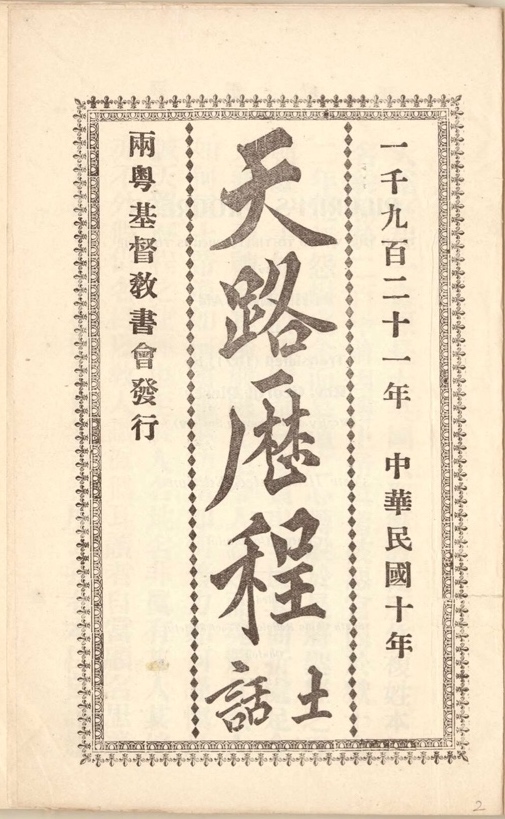 一千九百二十一年 中華民國十年
天路歷程土話
兩粵基督教書會發行
2